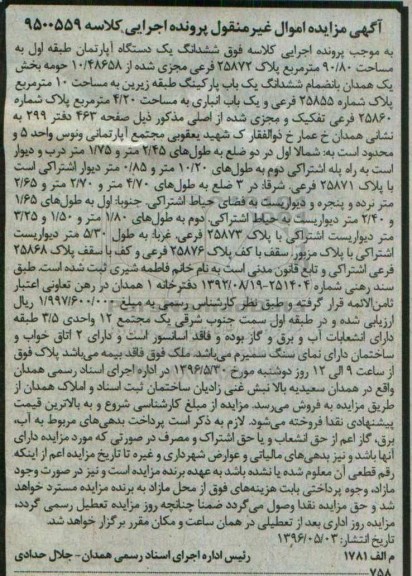 آگهی مزایده اموال غیرمنقول پرونده اجرایی کلاسه ۹۵۰۰۵۵۹
به موجب پرونده اجرایی کلاسه فوق ششدانگ یک دستگاه آپارتمان طبقه اول به
مساحت ۹۰/۸۰ مترمربع پلاک ۲۵۸۷۲ فرعی مجزی شده از ۱۰/۴۸۶۵۸ حومه بخش
یک همدان بانضمام ششدانگ یک باب پارکینگ طبقه زیرین به مساحت ۱۰ مترمربع
پلاک شماره ۲۵۸۵۵ فرعی و یک باب انباری به مساحت ۴/۲۰ مترمربع پلاک شماره
۲۵۸۶۰ فرعی تفکیک و مجزی شده از اصلی مذکور ذیل صفحه ۴۶۳ دفتر ۲۹۹ به
نشانی همدان خ عمار خ ذوالفقار ک شهید یعقوبی مجتمع آپارتمانی ونوس واحد ۵ و
محدود است به: شمالا اول در دو ضلع به طول‌های ۲/۴۵ متر و ۱/۷۵ متر درب و دیوار
است به راه پله اشتراکی دوم به طول‌های ۱۰/۲۰ متر و ۰/۸۵ متر دیوار اشتراکی است
با پلاک ۲۵۸۷۱ فرعی، شرقا: در ۳ ضلع به طول‌های ۴/۷۰ متر و ۲/۷۰ متر و ۲/۶۵
متر نرده و پنجره و دیواریست به فضای حیاط اشتراکی، جنوبا: اول به طول‌های ۱/۶۵
و ۲/۴۰ متر دیواریست به حیاط اشتراکی، دوم به طول‌های ۱/۸۰ متر و ۱/۵۰ و ۳/۲۵
متر دیواریست اشتراکی با پلاک ۲۵۸۷۳ فرعی، غربا: به طول ۵/۳۰ متر دیواریست
اشتراکی با پلاک مزبور، سقف با کف پلاک ۲۵۸۷۶ فرعی و کف با سقف پلاک ۲۵۸۶۸
فرعی اشتراکی و تابع قانون مدنی است به نام خانم فاطمه شیری ثبت شده است. طبق
سند رهنی شماره ۲۵۱۴۰۴-۱۳۹۲/۰۸/۱۹ دفترخانه ۱ همدان در رهن تعاونی اعتبار
ثامن‌الائمه قرار گرفته و طبق نظر کارشناس رسمی به مبلغ ۱/۹۹۷/۶۰۰/۰۰۰ ریال
ارزیابی شده و در طبقه اول سمت جنوب شرقی یک مجتمع ۱۲ واحدی ۳/۵ طبقه
دارای انشعابات آب و برق و گاز بوده و فاقد آسانسور است و دارای ۲ اتاق خواب و
ساختمان دارای نمای سنگ سفیرم می‌باشد ملک فوق فاقد بیمه می‌باشد پلاک فوق
از ساعت ۹ الی ۱۲ روز دوشنبه مورخ ۱۳۹۶/۵/۳۰ در اداره اجرای اسناد رسمی همدان
واقع در همدان سعیدیه بالا نبش غنی زادیان ساختمان ثبت اسناد و املاک همدان از
طریق مزایده به فروش می‌رسد. مزایده از مبلغ کارشناسی شروع و به بالاترین قیمت
پیشنهادی نقدا فروخته می‌شود. لازم به ذکر است پرداخت بدهی‌های مربوط به آب،
برق، گاز اعم از حق انشعاب و یا حق اشتراک و مصرف در صورتی که مورد مزایده دارای
آنها باشد و نیز بدهی‌های مالیاتی و عوارض شهرداری و غیره تا تاریخ مزایده اعم از اینکه
رقم قطعی آن معلوم شده یا نشده باشد به عهده برنده مزایده است و نیز در صورت وجود
مازاد، وجوه پرداختی بابت هزینه‌های فوق از محل مازاد به برنده مزایده مسترد خواهد
شد و حق مزایده نقدا وصول می‌گردد ضمنا چنانچه روز مزایده تعطیل رسمی گردد،
مزایده روز اداری بعد از تعطیلی در همان ساعت و مکان مقرر برگزار خواهد شد.
تاریخ انتشار: ۱۳۹۶/۰۵/۰۳
م الف ۱۷۸۱ رئیس اداره اجرای اسناد رسمی همدان- جلال حدادی
۷۵۸